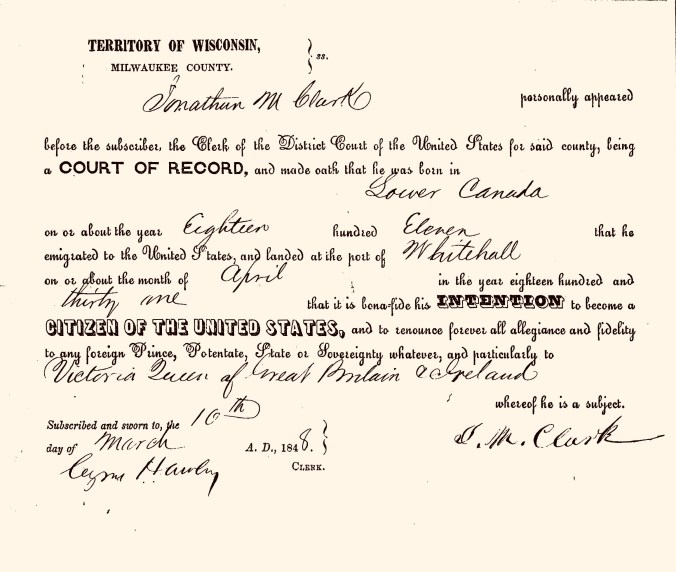 TERRITORY OF WISCONSIN, } ss.
MILWAUKEE COUNTY.
Jonathan M Clark personally appeared
before the subscriber, the Clerk of the District Court of the United States for said county, being
a COURT OF RECORD, and made oath that he was born in
Lower Canada
on or about the year Eighteen hundred Eleven that he
emigrated to the United States, and landed at the port of Whitehall
on or about the month of April in the year eighteen hundred and
thirty one that it is bona-fide his INTENTION to become a
CITIZEN OF THE UNITED STATES, and to renounce forever all allegiance and fidelity
to any foreign Prince, Potentate, State or Sovereignty whatever, and particularly to
Victoria Queen of Great Britain & Ireland
whereof he is a subject.
Subscribed and sworn to, the 10th
day of March A. D., 1848. }
J. M. Clark
CLERK.